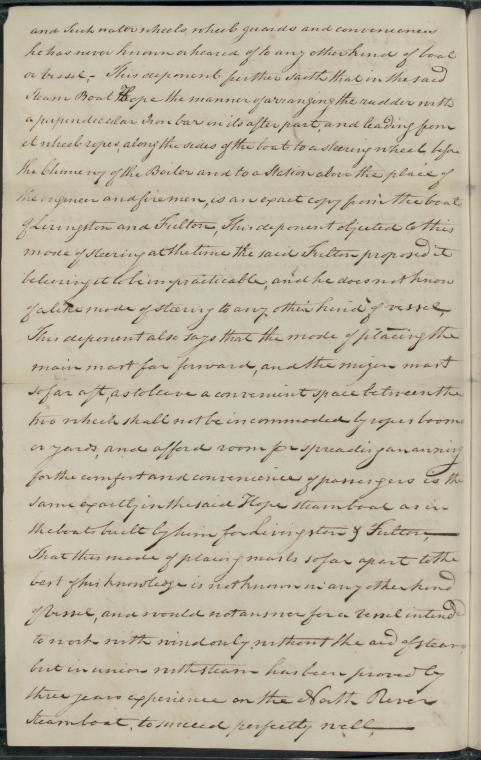 and such water wheels, wheel guards and conveniences
he has never known or heared of to any other kind of boat
or vessel,- This deponent further saith that in the said
Steam Boat Hope the manner of arranging the rudder with
a perpendicular Iron bar on its after part, and leading from
it wheel ropes, along the sides of the boat to a steering wheel before
the Chimney of the Boiler and to a Station above the place of
the engineer and firemen, is an exact copy from the boats
of Livingston and Fulton, This deponent objected to this
mode of steering at the time the said Fulton proposed it
believing it to be impracticable, and he does not know
of a like mode of steering to any other kind of vessel,
This deponent also says that the mode of placing the
main mast far forward, and the mizen mast
so far aft, as to leave a convenient space between the
two which shall not be incommoded by ropes booms
or yards, and afford room for spreading an awning
for the comfort and convenience of passengers is the
same exactly in the said Hope steam boat as in
the boats built by him for Livingston & Fulton,
That this mode of placing masts so far apart to the
best of his knowledge is not known in any other kind
of vessel, and would not answer for a vessel intend
to work with wind only without the aid of steam,
but in union with steam has been proved by
three years experience on the North River
Steam boat, to succeed perfectly well,